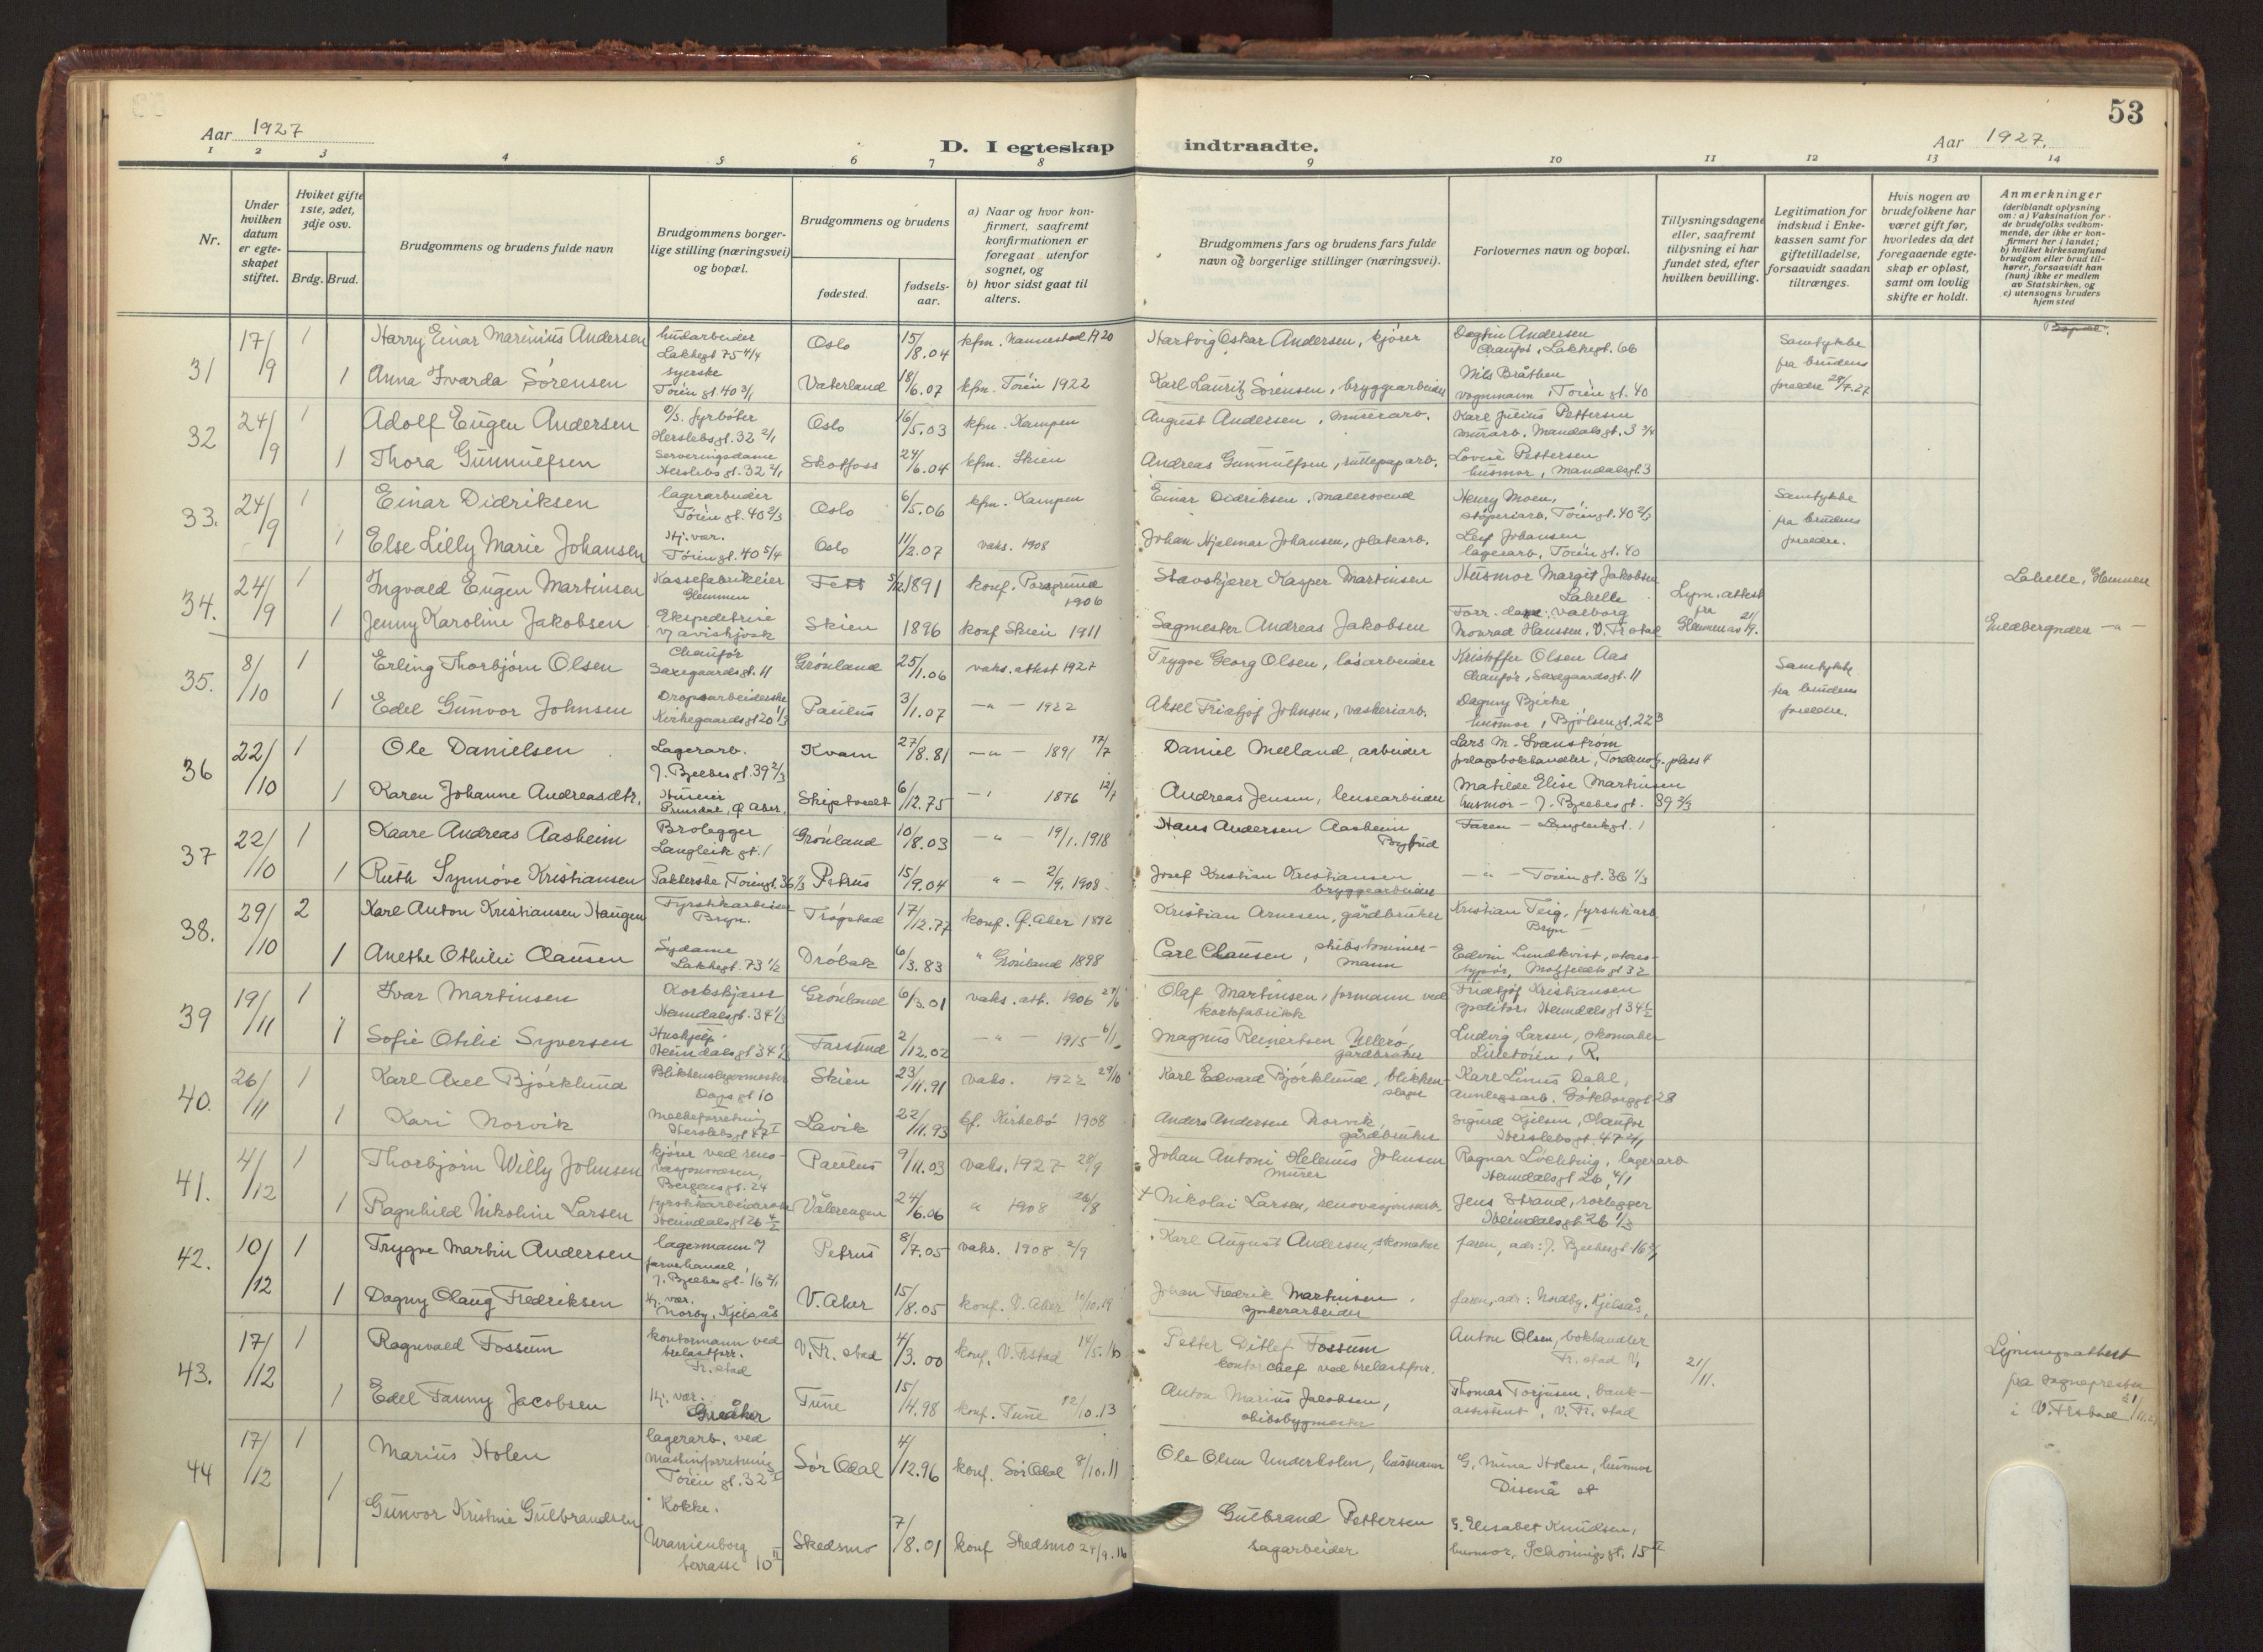 53
Aar 1927
D. I egteskap indtraadte.
Aar 1927.
1 2 3 4 5 6 7 8 9 10 11 12 13 14
Nr.
Under hvilken datum er egteskapet stiftet.
Hviket gifte 1ste, 2det, 3dje osv.
Brdg. Brud.
Brudgommens og brudens fulde navn
Brudgommens borgerlige stilling (næringsvei) og bopæl.
Brudgommens og brudens
fødested.
fødselsaar.
a) Naar og hvor konfirmert, saafremt konfirmationen er foregaat utenfor sognet, og
b) hvor sidst gaat til alters.
Brudgommens fars og brudens fars fulde navn og borgerlige stillinger (næringsvei).
Forlovernes navn og bopæl.
Tillysningsdagene eller, saafremt tillysning ei har fundet sted, efter hvilken bevilling.
Legitimation for indskud i Enkekassen samt for giftetilladelse, forsaavidt saadan tiltrænges.
Hvis nogen av brudefolkene har været gift før, hvorledes da det foregaaende egteskap er opløst, samt om lovlig skifte er holdt.
Anmerkninger
(deriblandt oplysning om: a) Vaksination for de brudefolks vedkommende, der ikke er konfirmert her i landet;
b) hvilket kirkesamfund brudgom eller brud tilhører, forsaavidt han (hun) ikke er medlem av Statskirken, og
c) utensogns bruders hjemsted
31 17/9 1 Harry Einar Marinius Andersen Lakkegt 75 4/4 Oslo 15/8.04 kfm. Nannestad 1920 Hartvig Oskar Andersen, kjører Dagfin Andersen Chaufør, Lakkegt. 66 Samtykke fra brudens foreldre 28/7.27
1 Anna Ivarda Sørensen syerske Tøien gt. 40 3/1 Vaterland 18/6.07 kfm. Tøien 1922 Karl Lauritz Sørensen, bryggearbeider Nils Bråthen vognmann, Tøien gt. 40
32 24/9 1 Adolf Eugen Andersen fyrbøter Herslebsgt. 32 2/1 Oslo 16/5.03 kfm. Kampen August Andersen, murarb. Karl Julius Pettersen murarb. Mandalsgt. 3 3/4
1 Thora Gunnulfsen Serveringsdame Herslebsgt. 32 2/1 Skotfoss 24/6.04 kfm. Skien Andreas Gunnulfsen, Lovise Pettersen husmor, Mandalsgt. 3
33. 24/9 1 Einar Didriksen lagerarbeider Tøien gt. 40 2/3 Oslo 6/5.06 kfm. Kampen Einar Didriksen, malersvend Henry Moen, støperiarb. Tøiengt. 40 2/3 Samtykke fra brudens foreldre.
1 Else Lilly Marie Johansen Hj. vær. Tøiengt. 40 5/4 Oslo 11/2.07 vaks. 1908 Johan Hjalmar Johansen, platearb. Leif Johansen lagerarb, Tøien gt. 40
34. 24/9 1 Ingvald Eugen Martinsen Kassefabrikeier Glemmen 1891 konf. Porsgrund 1906 Kasper Martinsen Husmor Margit Jakobsen Labelle Lysn. attest fra Glemmen av 21/9. Labelle, Glemmen
1 Jenny Karoline Jakobsen Ekspeditrise Skien 1896 konf Skien 1911 Sagmester Andreas Jakobsen Valborg Monrad Hanssen, V. Fr.stad
35. 8/10 1 Erling Thorbjørn Olsen Chaufør Saxegaardsgt. 11 Grønland 25/1.06 vaks. attest 1927 Trygve Georg Olsen, løsarbeider Kristoffer Olsen Aas Chaufør, Saxegaardsgt. 11 Samtykke fra brudens foreldre.
1 Edel Gunvor Johnsen Dropsarbeiderske Kirkegaardsgt 20 1/3 Paulus 3/1.07 — " — 1922 Aksel Fridtjof Johnsen, vaskeriarb. Dagny Bjerke husmor, Bjølsengt. 22 3
36 22/10 1 Ole Danielsen Lagerarb. J. Bjelkes gt. 39 2/3 Kvam 27/8.81 — " — 1891 17/7 Daniel Melland, arbeider Lars M. Svanstrøm Tordensk. plass 4
1 Karen Johanne Andreasdtr. Ø. Aker. Skiptvedt 6/12.75 — " 1876 12/7 Andreas Jensen, lensearbeider Matilde Elise Martinsen husmor — J. Bjelkes gt. 39 2/3
37 22/10 1 Kaare Andreas Aasheim Brolegger Langleik gt. 1 Grønland 10/8.03 — " — 19/1.1918 Hans Andersen Aasheim Faren — Langleikgt. 1
1 Ruth Synnøve Kristiansen Pakkerske, Tøiengt. 36 1/3 Petrus 15/9.04 " — 2/9.1908 Josef Kristian Kristiansen bryggearbeider — " — Tøiengt. 36 1/3
38. 29/10 2 Karl Anton Kristiansen Haugen Fyrstikkarbeider Bryn. Trøgstad 17/12.77 konf. Ø. Aker 1892 Kristian Arnesen, gårdbruker Kristian Teig, fyrstikkarb. Bryn —
1 Anethe Othilie Clausen Sydame Lakkegt. 73 1/2 Drøbak 6/3.83 " Grønland 1898 Carl Clausen, skibstømmermann Edvin Lundkvist, stereotypør, Motzfeldts gt 32
39 19/11 1 Ivar Martinsen Korkskjærer Heimdalsgt. 34 1/3 Grønland 6/3.01 vaks. att. 1906 27/6 Olaf Martinsen, formann ved korkfabrikk Fridtjof Kristiansen Heimdalsgt 34 1/2
1 Sofie Otilie Syversen Hushjelp Heimdalsgt 34 1/3 Farsund 2/12.02 — " — 1915 6/1 Magnus Reinertsen Ullerø, gårdbruker Ludvig Larsen, skomaker Lilletøien, R.
40. 26/11 1 Karl Axel Bjørklund Blikkenslagermester Dags gt 10 Skien 23/11.91 vaks. 1922 29/10 Karl Edvard Bjørklund, blikkenslager Karl Linus Dahl, anlegsarb. Göteborggt 28
1 Kari Norvik Melkeforretning Herslebsgt 47 I Lavik 22/11.93 kf. Kirkebø 1908 Anders Andersen Norvik, gårdbruker Sigurd Kjelsen, Chaufør Herslebsgt. 47 2/1
41. 4/12 1 Thorbjørn Willy Johnsen kjører ved renovasjonsvesen, Bergens gt. 24 Paulus 9/11.03 vaks. 1927 28/9 Johan Antoni Helenus Johnsen murer Ragnar Løekting, lagerarb Heimdalsgt 26, 4/1
1 Ragnhild Nikoline Larsen fyrstikkarbeiderske Heimdalsgt 26 4/2 Vålerengen 24/6.06 " 1908 26/8 + Nikolai Larsen, renovasjonsarb. Jens Strand, rørlegger Heimdalsgt 26 1/3
42. 10/12 1 Trygve Martin Andersen lagermann farvehandel, J. Bjelkes gt. 16 2/1 Petrus 8/7.05 vaks. 1908 2/9 Karl August Andersen, skomaker faren, adr: J. Bjelkesgt 16 2/1
1 Dagny Olaug Fredriksen Hj. vær. Norby, Kjelsås V. Aker 15/8.05 konf. V. Aker 10/10.19 Johan Fredrik Martinsen spikerarbeider faren, adr: Nordby, Kjelsås,
43. 17/12 1 Ragnvald Fossum kontormann ved trelastforr. Fr.stad V. Fr. stad 4/3.00 konf. V. Frstad 14/5.16 Petter Ditlef Fossum kontorchef ved trelastforr. Anton Olsen, bokhandler Fr. stad V, 21/11. Lysningsattest fra sognepresten i V. Frstad 21/11.27
1 Edel Fanny Jacobsen Hj. vær. Greåker Tune 15/4.98 konf. Tune 12/10.13 Anton Marius Jacobsen, skibsbygmester Thomas Torjusen, bankassistent, V. Fr. stad
44 17/12 1 Marius Holen lagerarb. ved maskinforretning Tøien gt. 32 Sør Odal 4/12.96 konf. Sør Odal 8/10.11 Ole Olsen Underholen, husmann G. Mina Holen, husmor Disenå st
1 Gunvor Kristine Gulbrandsen Kokke. Uranienborg terrasse 10 II Skedsmo 7/8.01 konf Skedsmo 24/9.16 Gulbrand Pettersen sagarbeider E. Elisabet Knudsen, husmor, Schøningsgt. 15 II